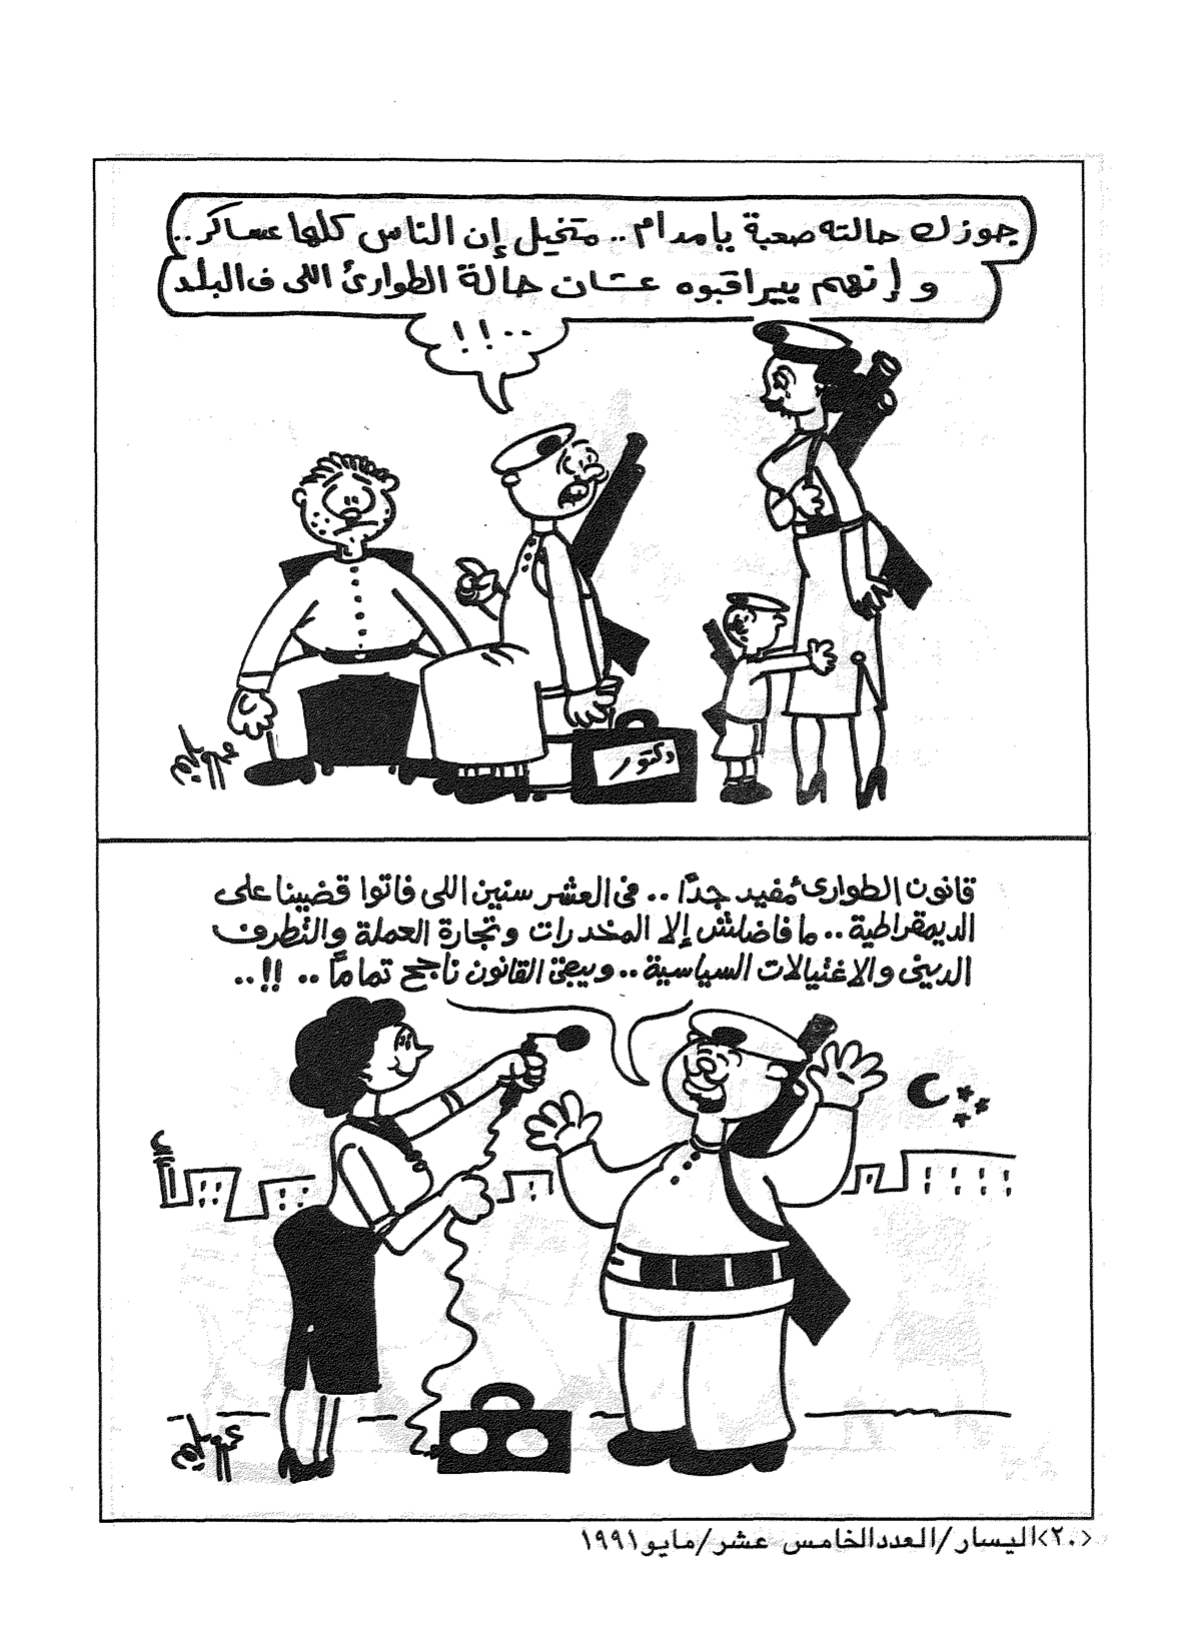 جوزك حالته صعبة يا مدام .. متخيل إن الناس كلها عساكر ..
و إنهم بيراقبوه عشان حالة الطوارئ اللى ف البلد
..!!
دكتور
قانون الطوارئ مُفيد جدًا .. فى العشر سنين اللى فاتوا قضينا على
الديمقراطية .. ما فاضلش إلا المخدرات وتجارة العملة والتطرف
الدينى والاغتيالات السياسية .. ويبقى القانون ناجح تمامًا .. !! ..
<٢٠>اليسار/العدد الخامس عشر/مايو ١٩٩١